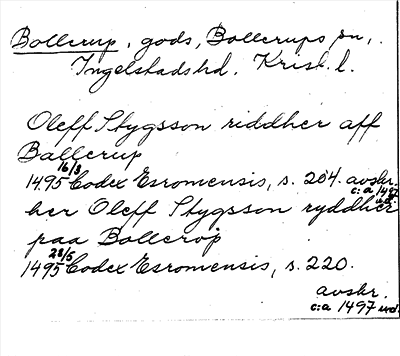 Bollerup, gods, Bollerups sn,.
Ingelstads hd. Krist. l.
Oleff Stygsson riddher aff
Ballerup
16/3
1495 Codex Esromensis, s. 204. avskr.
c:a 1497
her Oleff Stygsson ryddher
paa Bollerop
28/5
1495 Codex Esromensis, s. 220.
avskr.
c:a 1497